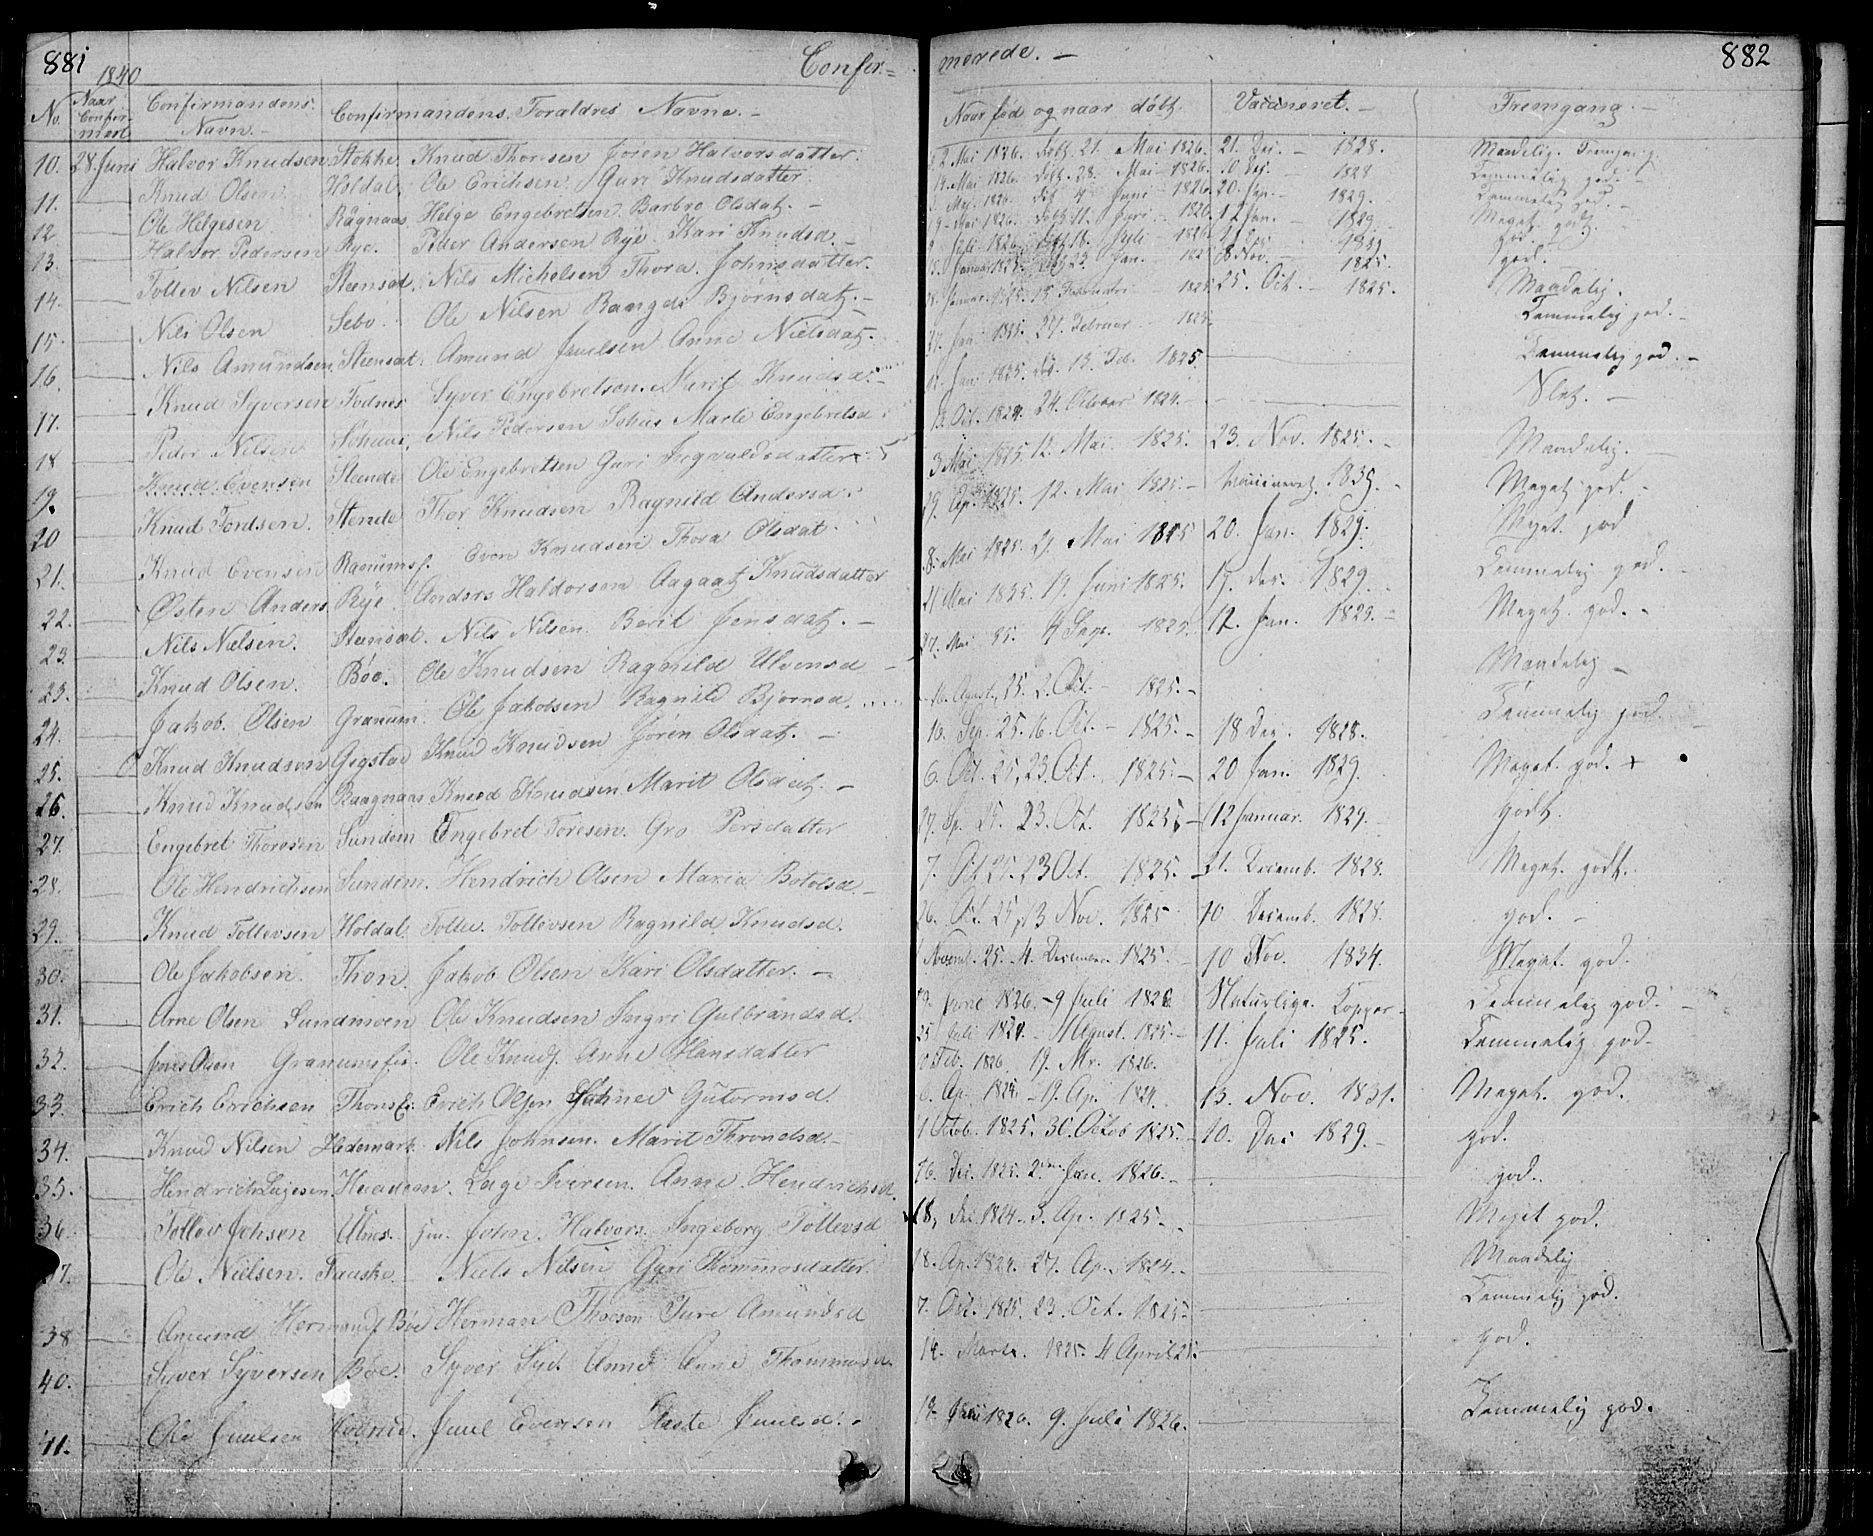 881 1840 Confir= merede. — 882
No. Naar Confirmert Confirmandens Navn. — Confirmandens Foraldres Navne. — Naar fød og naar døbt. Vaccineret. — Fremgang. —
10. 28. Juni Halvor Knudsen Stokke. Knud Thoresen Jøren Halvorsdatter. 2. Mai 1826. døbt 21. Mai 1826. 21. Dec. — 1828. Maadelig. Fremgang.
11. Knud Olsen. Holdal. Ole Erichsen. Guri Knudsdatter. 14. Mai 1826. døbt 28. Mai — 1826. 10 Dec. 1828 Temmelig god.
12. Ole Helgesen Rägnaas Helge Engebretsen. Barbro Olsdatz. — Mai 1826. døbt 4 Juni 1826. 20. Jan. — 1829. Temmelig god. —
13. Halvor Pedersen Rye. Peder Andersen Rye. Kari Knudsd. — Mai 1826. døbt 11. Juni. — 1826. 12 Jan. — 1829. Meget godt.
14. Tollev Nilsen Steensat. Nils Michelsen Thora. Johnsdatter. Juli 1826. døbt 16. Juli — 1826 god.
15. Nils Olsen Sebo. Ole Nilsen Raangdi Bjørnsdatz. — Januar 1825. 23. Jan. 8 Nov. 1825. god.
16. Nils Amundsen. Steensat. Amund Juulsen Anne Nielsdatz. — Januar 1825. 13 Februar — 1825 25. Oct. — 1825. Maadelig.
17. Knud Syversen Fodnes Syver Engebretsen. Marit Knudsd. — 27. Jan. 1825. 27. Februar — 1825. Temmelig god. —
18 Peder Nilsen Sohuus. Nils Pedersen Sohus Marte Engebretsd. Jan. 1825. 13. Feb. 1825. Temmelig god. —
19. Knud Evensen Steende Ole Engebretsen Guri Ingvaldsdatter. Oct. 1824. 24. October 1824. — Slet. —
20 Knud Tordsen. Stende Thor Knudsen Ragnild Andersd. 3 Mai 1825. 12. Mai 1825. 23. Nov. 1825. — Maadelig. —
21. Knud Evensen Ranumsf. Even Knudsen Thora Olsdat. 29. Ap. 1825. 12. Mai 1825. — Vaccineret. 1839. — Meget god. —
22. Østen Anders Rye. Anders Haldorsen Aagaatz Knudsdatter 8. Mai 1825. 21. Mai 1825 20. Jan. 1829. Meget god
23. Nils Nielsen. Steensat. Nils Nilsen. Berit Jensdatz. — 21 Mai 1825. 19. Juni 1825. 19. Dec. 1829. Temmelig god. —
23. Knud Olsen. Böe. Ole Knudsen Ragnild Ulvensd — 27. Mai 25. 4 Sep. 1825. 12. Jan. 1825. — Meget. god. —
24. Jakob. Olsen Granum. Ole Jakobsen Ragnild Bjørnsd. 16. August, 25. 2. Oct. — 1825. — Maadelig —
25. Knud Knudsen Gigstad Knud Knudsen Jøren Olsdatz. — 16. Sep. 25. 16. Oct. — 1825. — 18 Dec. 1828. Temmelig god. —
26. Knud Knudsen Raagnaas Knud Knudsen Marit Olsdatz. — 6. Oct. 25, 23. Oct. 1825. — 20 Jan. 1829. Meget. god. +
27. Engebret Thoresen Sundem Engebret Toresen. Gro Persdatter 29. Sp. 25. 23. Oct. 1825. — 12 Januar. 1829. godt.
28. Ole Hendrichsen Sundem. Hendrich Olsen Maria Botolsd — 7. Oct 25. 23 Oct. 1825. — 21. Decemb. 1828. Meget. godt.
29. Knud Tollevsen Holdal. Tollev. Tollevsen Ragnild Knudsd. 26. Oct. 25, 13 Nov. 1825 10. Decemb. 1828. god. —
30. Ole Jakobsen. Thon. Jakob Olsen Kari Olsdatter. — Novemb. 25. — 4. December 1825. — 10 Nov. 1834. Meget. god.
31. Arne Olsen Sundmoen Ole Knudsen Ingri Gulbrandsd. Juni 1826. — 9 Juli 1826 Naturlige. Kopper — Temmelig god. —
32. Jens Olsen Granumsfie. Ole Knudz. Anne Hansdatter 25 Juli 1824. — August. 1825. — 11. Juli 1825. Temmelig god. —
33. Erich Erichsen ThonsEi. Erich Olsen Gutormsd. Feb. 1826. 19. Mr. 1826.
34. Knud Nilsen Hedemark. Nils Johnsen. Marit Throndsd. — 6. Ap. 1824 — 19. Ap. 1824. 13. Nov. 1831. Meget. god.
35. Hendrich Lagesen. Haadem. Lage Iversen. Anne Hendrichsd. 1 Octob. 1825. 30. Octob 1825. — 10. Dec 1829. — god.
36. Tollev Johsen Ulnes. John. Halvors. Ingeborg Tollevsd 26. Dec. 1825. 2. Jan. 1826. — god.
37. Ole Nielsen. Fauske Niels Nilsen Guri Thommosdatter. 18, Dec 1824. 3. Ap. 1825. — Meget god.
38 Amund Hermandz. Böe Herman Thorson Ture Amundsd 18. Ap. 1824. 27. Ap. 1824. — Maadelig
40. Syver Syversen Böe. Syver Syv. Anne Anne Thommosd. 7. Oct. 1825. 23. Oct. 1825 — Temmelig god.
14. Marts. 1825. 4 April 25. god.
41. Ole Juulsen Juul Evensen Juulsd. — Juni 1826. 9. Juli 1826. Temmelig god.